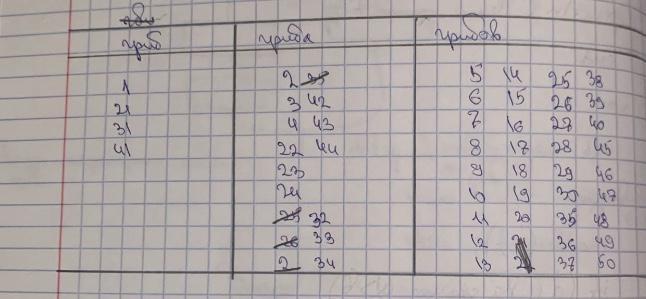 гриб гриба грибов
1 2 5 14 25 38
21 3 42 6 15 26 39
31 4 43 7 16 27 40
41 22 44 8 17 28 45
23 9 18 29 46
24 10 19 30 47
25 32 11 20 35 48
26 33 12 36 49
2 34 13 37 50